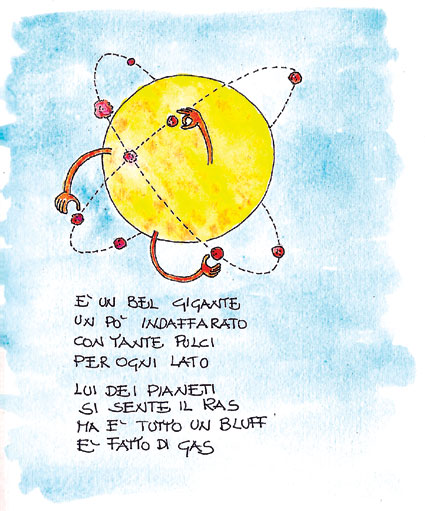 E' UN BEL GIGANTE
UN PO' INDAFFARATO
CON TANTE PULCI
PER OGNI LATO
LUI DEI PIANETI
SI SENTE IL RAS
MA E' TUTTO UN BLUFF
E' FATTO DI GAS